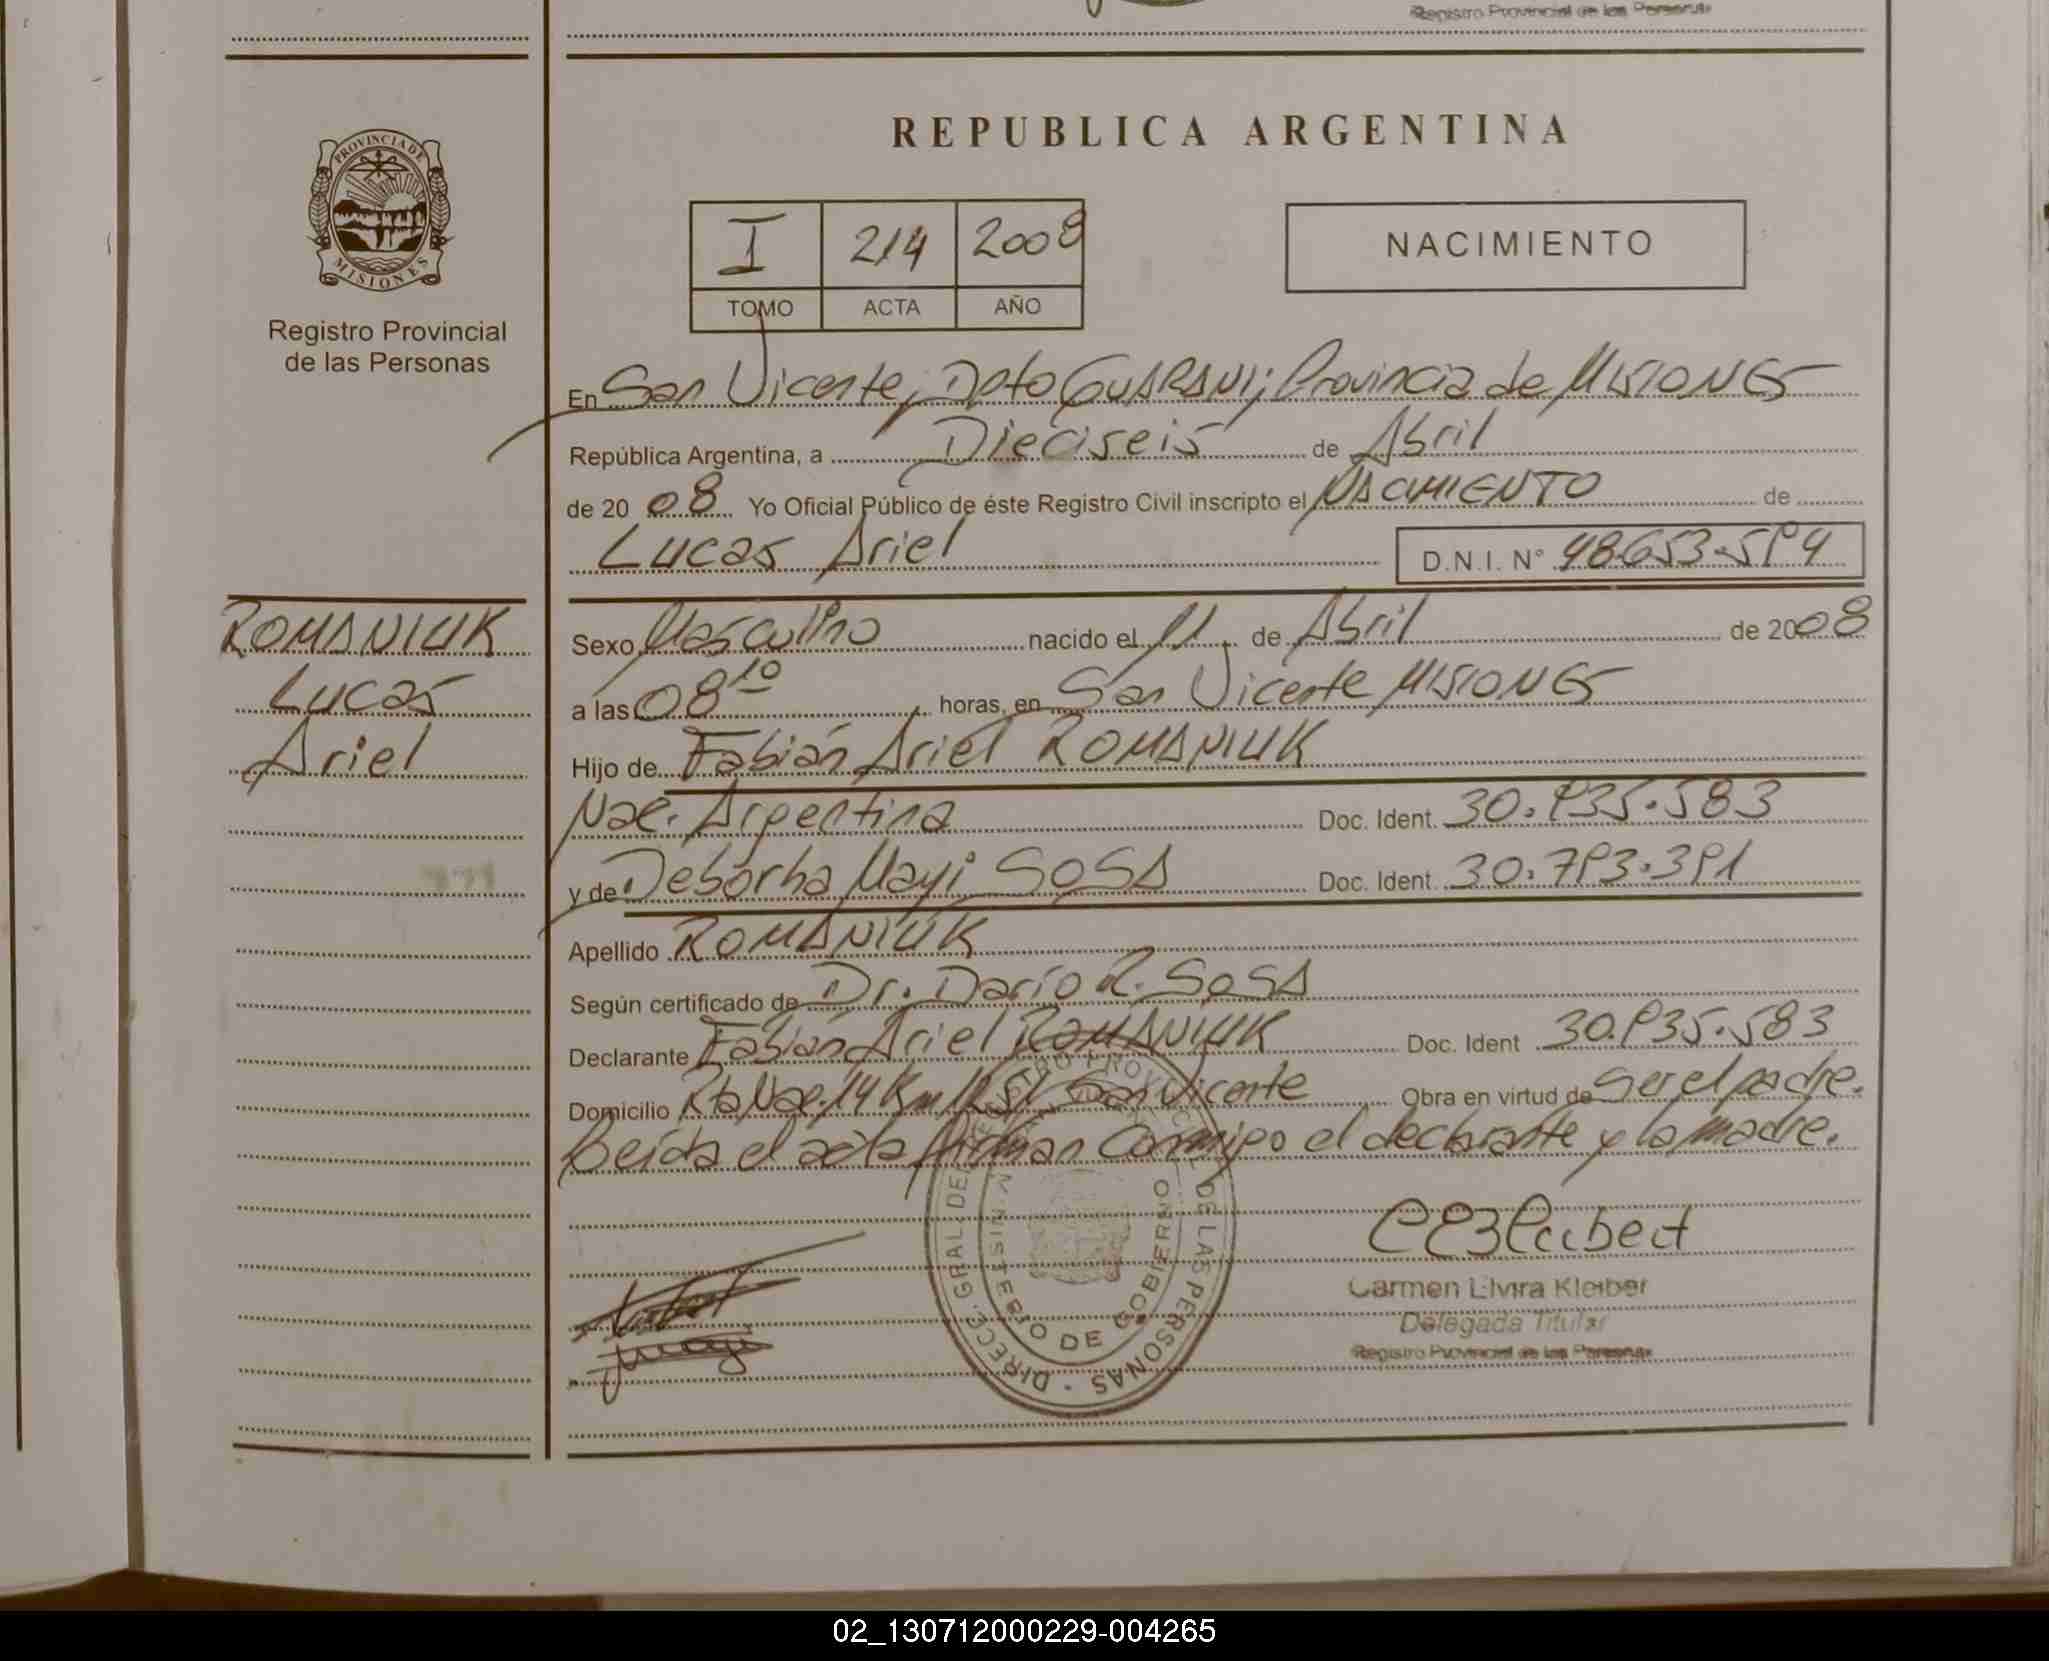 Registro Provincial de las Personas
PROVINCIA DE
MISIONES
Registro Provincial
de las Personas
REPUBLICA ARGENTINA
I 214 2008
TOMO ACTA AÑO
NACIMIENTO
En San Vicente, Dpto GUARANI; Provincia de MISIONES
República Argentina, a Dieciseis de Abril
de 2008 Yo Oficial Público de éste Registro Civil inscripto el NACIMIENTO de
Lucas Ariel D.N.I. Nº 48.653.594
ROMANIUK
Lucas
Ariel
Sexo Masculino nacido el 11 de Abril de 2008
a las 08 10 horas, en San Vicente MISIONES
Hijo de Fabián Ariel ROMANIUK
Nac. Argentina Doc. Ident. 30.935.583
y de Deborha Mayi SOSA Doc. Ident. 30.793.391
Apellido ROMANIUK
Según certificado de Dr. Darío R. SOSA
Declarante Fabián Ariel ROMANIUK Doc. Ident 30.935.583
Domicilio Rta Nac. 14 Km San Vicente Obra en virtud de Ser el padre.
Leída el acta firman Conmigo el declarante y la madre.
DIRECC. GRAL. DEL REGISTRO PROVINCIAL DE LAS PERSONAS
MINISTERIO DE GOBIERNO
Carmen Elvira Kleiber
Delegada Titular
Registro Provincial de las Personas
02_130712000229-004265